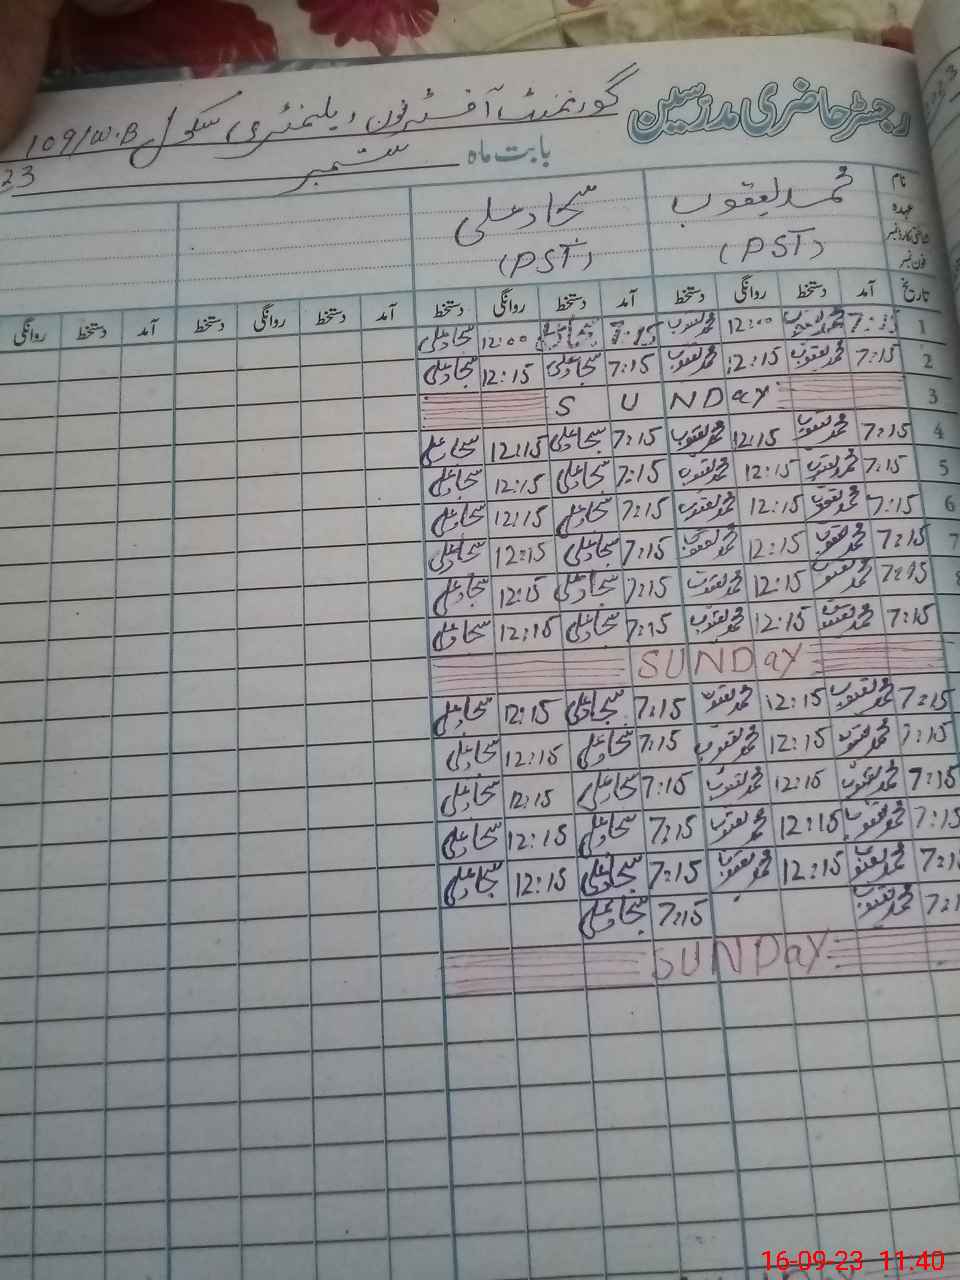 رجسٹر حاضری مدرسین گورنمنٹ آفٹر نون ایلمنٹری سکول 109/W.B
بابت ماہ ستمبر 23
نام محمد یعقوب سجاد علی
عہدہ
شناختی کارڈ نمبر (PST) (PST)
فون نمبر
تاریخ آمد دستخط روانگی دستخط آمد دستخط روانگی دستخط آمد دستخط روانگی دستخط آمد دستخط روانگی
1 7:15 محمد یعقوب 12:00 محمد یعقوب 7:15 سجاد علی 12:00 سجاد علی
2 7:15 محمد یعقوب 12:15 محمد یعقوب 7:15 سجاد علی 12:15 سجاد علی
3 SUNDAY
4 7:15 محمد یعقوب 12:15 محمد یعقوب 7:15 سجاد علی 12:15 سجاد علی
5 7:15 محمد یعقوب 12:15 محمد یعقوب 7:15 سجاد علی 12:15 سجاد علی
6 7:15 محمد یعقوب 12:15 محمد یعقوب 7:15 سجاد علی 12:15 سجاد علی
7 7:15 محمد یعقوب 12:15 محمد یعقوب 7:15 سجاد علی 12:15 سجاد علی
8 7:15 محمد یعقوب 12:15 محمد یعقوب 7:15 سجاد علی 12:15 سجاد علی
7:15 محمد یعقوب 12:15 محمد یعقوب 7:15 سجاد علی 12:15 سجاد علی
SUNDAY
7:15 محمد یعقوب 12:15 محمد یعقوب 7:15 سجاد علی 12:15 سجاد علی
7:15 محمد یعقوب 12:15 محمد یعقوب 7:15 سجاد علی 12:15 سجاد علی
7:15 محمد یعقوب 12:15 محمد یعقوب 7:15 سجاد علی 12:15 سجاد علی
7:15 محمد یعقوب 12:15 محمد یعقوب 7:15 سجاد علی 12:15 سجاد علی
7:15 محمد یعقوب 12:15 محمد یعقوب 7:15 سجاد علی 12:15 سجاد علی
7:1 محمد یعقوب 7:15 سجاد علی
SUNDAY
16-09-23 11.40